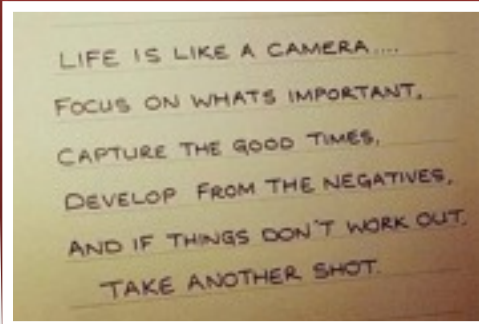 LIFE IS LIKE A CAMERA....
FOCUS ON WHATS IMPORTANT,
CAPTURE THE GOOD TIMES,
DEVELOP FROM THE NEGATIVES,
AND IF THINGS DON'T WORK OUT,
TAKE ANOTHER SHOT.